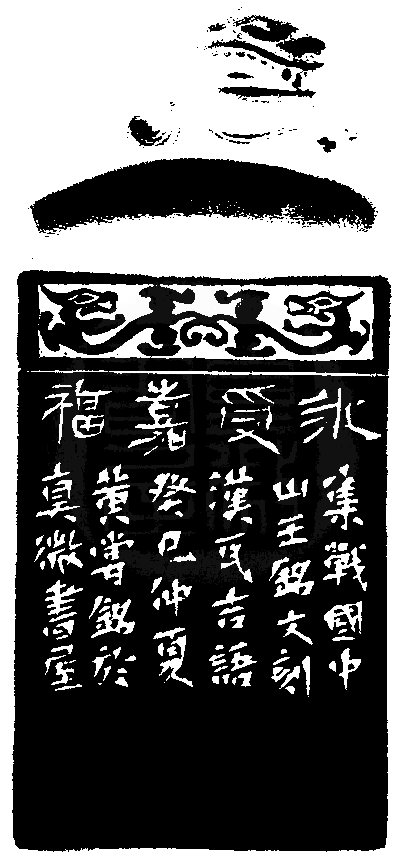 永受嘉福
集戰國中
山王銘文刻
漢瓦吉語
癸巳仲夏
黄嘗銘於
真微書屋